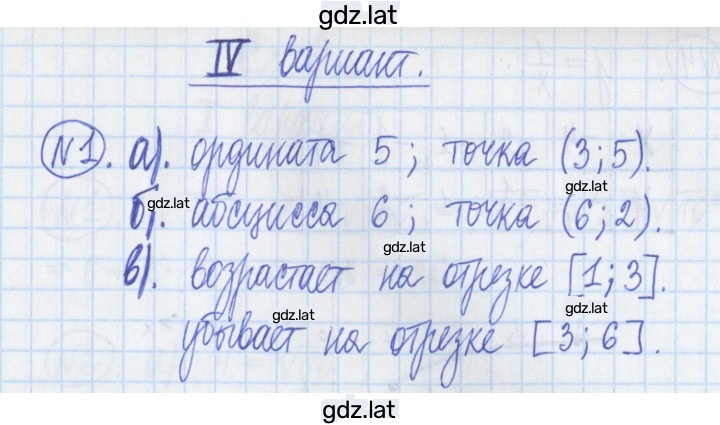 gdz.lat
IV вариант.
№1. а). ордината 5 ; точка (3 ; 5).
gdz.lat
б). абсцисса 6 ; точка (6 ; 2).
gdz.lat
gdz.lat
в). возрастает на отрезке [1 ; 3].
gdz.lat
убывает на отрезке [3 ; 6].
gdz.lat